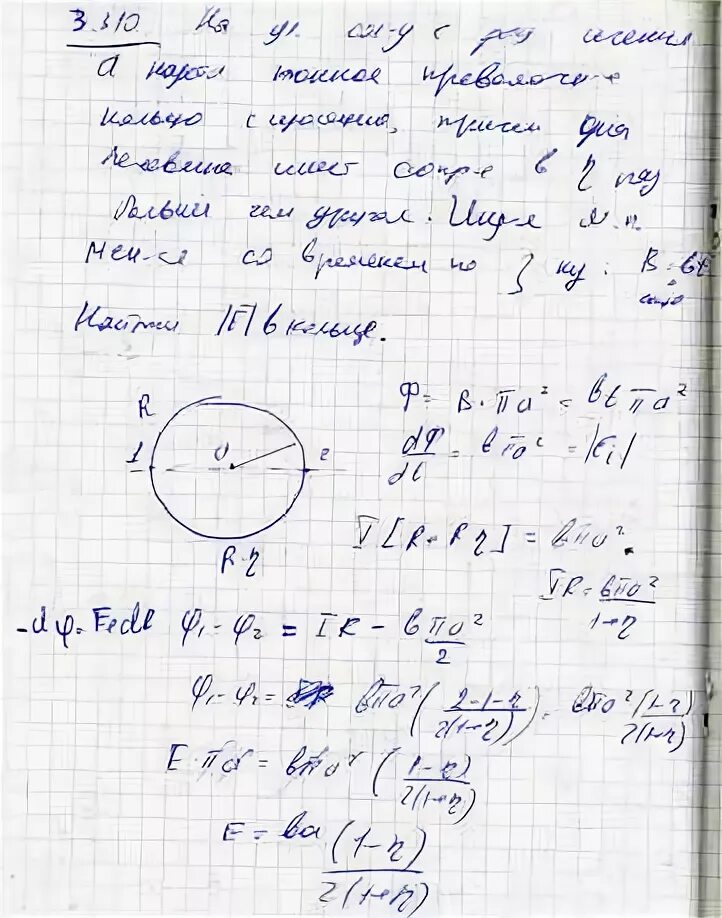 3.310. На дл. сол-у с рад сечения
a надет тонкое проволочное
кольцо с сечения, причем одна
половина имеет сопр-е в η раз
больше чем другая. Инд-я м.п.
мен-ся со временем по з-ку: B = bt
Найти |E| в кольце.
R
1 O 2
R·η
Ф = B·πa² = btπa²
dФ/dt = bπa² = |ε_i|
I[R+Rη] = bπa².
IR = bπa²/(1+η)
-dφ = E_e dl φ₁-φ₂ = IR - bπa²/2
φ₁-φ₂ = bπa²((2-1-η)/(2(1+η))) = bπa²(1-η)/(2(1+η))
E·πa = bπa²((1-η)/(2(1+η)))
E = ba(1-η)/(2(1+η))